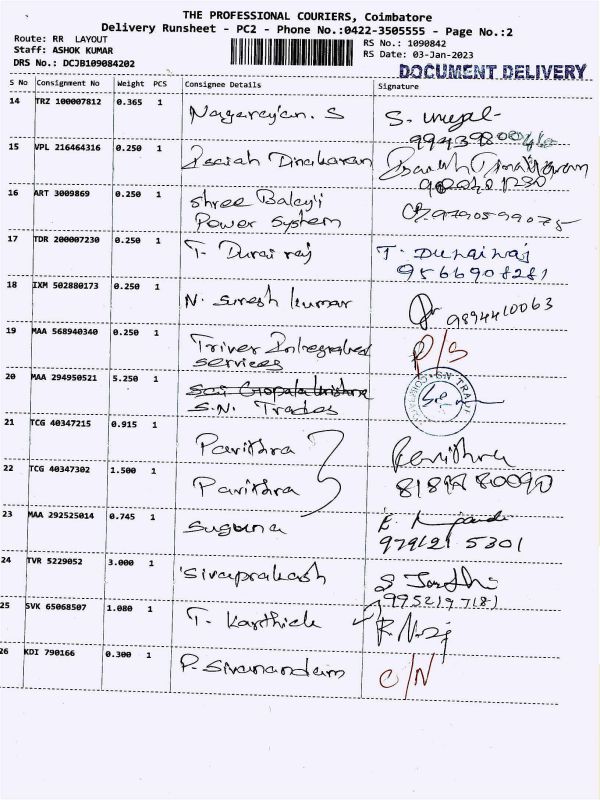 THE PROFESSIONAL COURIERS, Coimbatore
Delivery Runsheet - PC2 - Phone No.:0422-3505555 - Page No.:2
Route: RR LAYOUT
RS No.: 1090842
Staff: ASHOK KUMAR
RS Date: 03-Jan-2023
DRS No.: DCJB109084202
DOCUMENT DELIVERY
S No Consignment No Weight PCS Consignee Details Signature
14 TRZ 100007812 0.365 1 Nagarajan. S S.
15 VPL 216464316 0.250 1 Isaiah Dinakaran
16 ART 3009869 0.250 1 Shree Balaji
Power System 9790599075
17 TDR 200007230 0.250 1 T. Durai raj T. Durairaj
9566908281
18 IXM 502880173 0.250 1 N. Suresh kumar 9894410063
19 MAA 568940340 0.250 1 Triver Integrated P/S
services
20 MAA 294950521 5.250 1 Sai Gopala krishna
S.N. Trades
21 TCG 40347215 0.915 1 Pavithra Pavithra
22 TCG 40347302 1.500 1 Pavithra
23 MAA 292525014 0.745 1 Suguna
5301
24 TVR 5229052 3.000 1 Sivaprakash S
9952197181
25 SVK 65068507 1.080 1 T. Karthick
26 KDI 790166 0.300 1 P. Sivanandam C/N